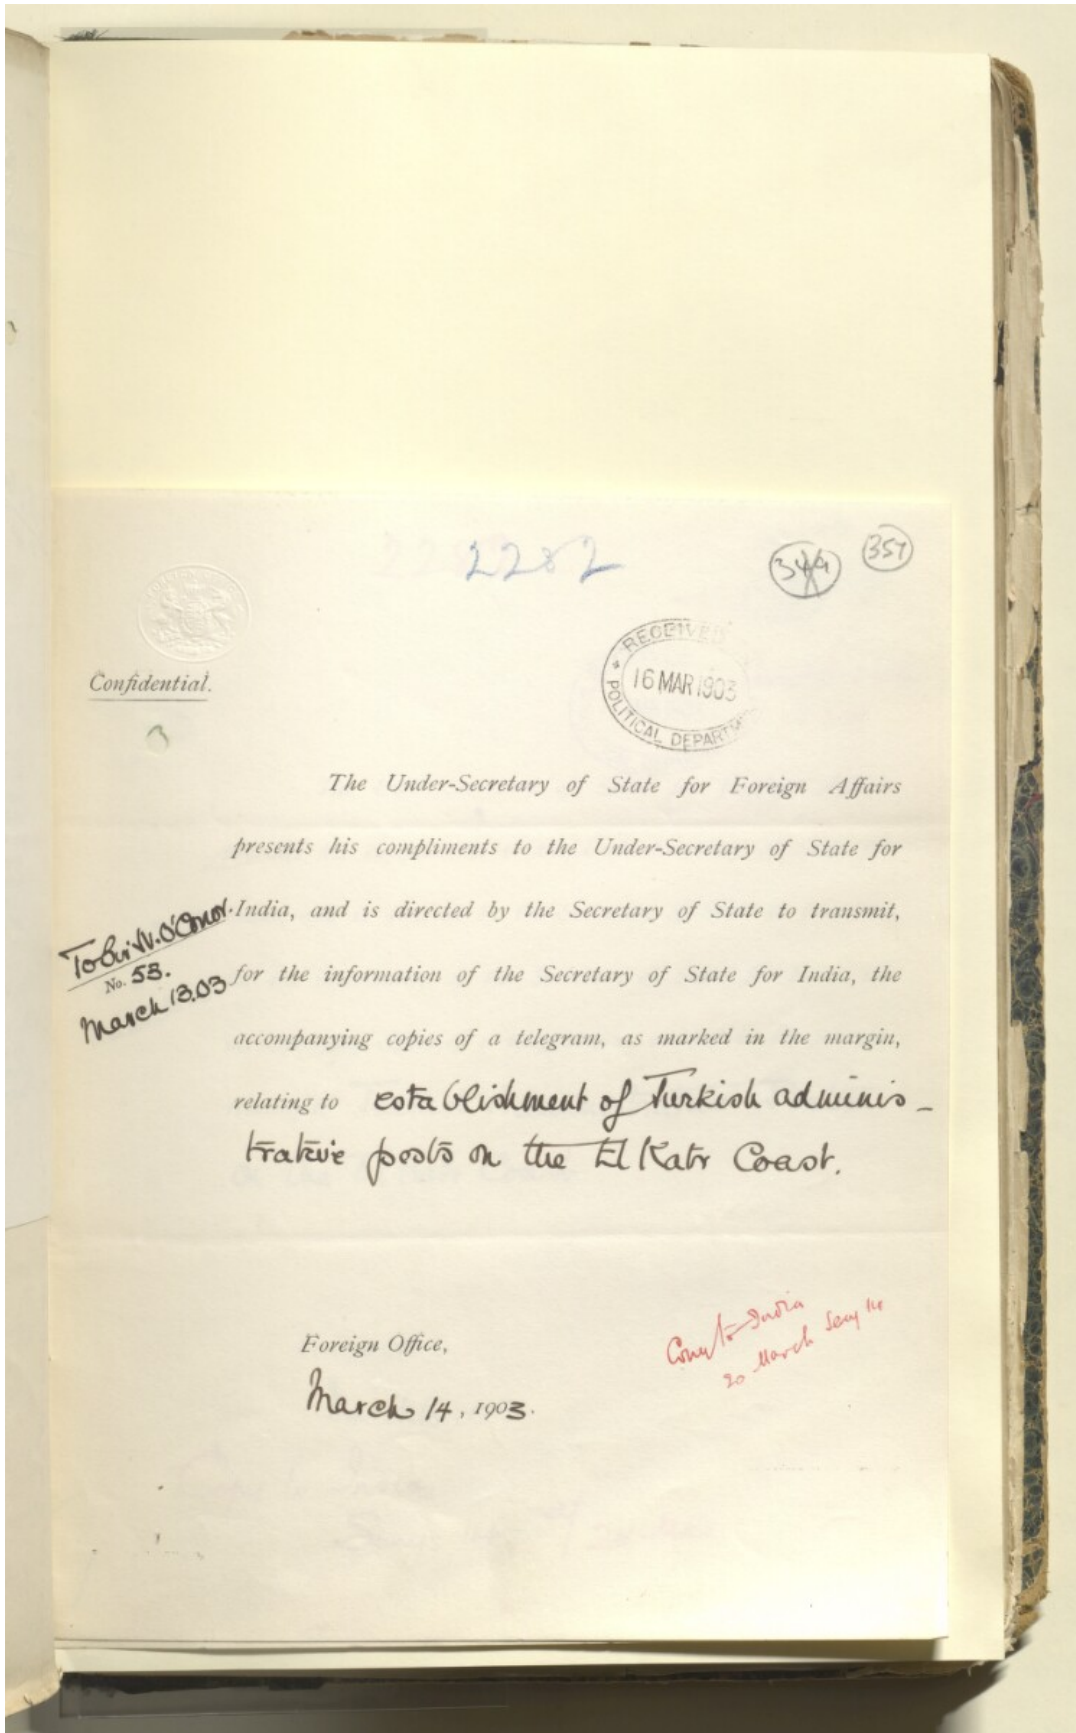 2282
349
357
Confidential.
RECEIVED
16 MAR 1903
POLITICAL DEPARTM
The Under-Secretary of State for Foreign Affairs
presents his compliments to the Under-Secretary of State for
India, and is directed by the Secretary of State to transmit,
To Sir N. O'Conor.
No. 53.
March 13.03
for the information of the Secretary of State for India, the
accompanying copies of a telegram, as marked in the margin,
relating to establishment of Turkish adminis-
trative posts on the El Katr Coast.
Foreign Office,
March 14, 1903.
India
20 March